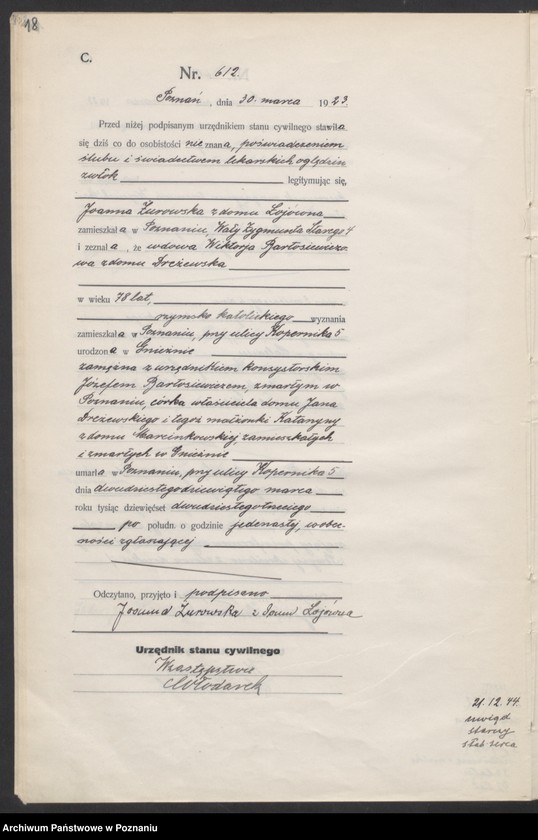 18
C.
Nr. 612.
Poznań, dnia 30. marca 1923.
Przed niżej podpisanym urzędnikiem stanu cywilnego stawiła
się dziś co do osobistości nieznana, poświadczeniem
ślubu i świadectwem lekarskich oględzin
zwłok legitymując się,
Joanna Żurowska z domu Lojówna
zamieszkała w Poznaniu, Wały Zygmunta Starego 4
i zeznała, że wdowa Wiktorja Bartosiewiczo-
wa z domu Dreżewska
w wieku 78 lat,
rzymsko katolickiego wyznania
zamieszkała w Poznaniu, przy ulicy Kopernika 5
urodzona w Gnieźnie
zamężna z urzędnikiem konsystorskim
Józefem Bartosiewiczem, zmarłym w
Poznaniu, córka właściciela domu Jana
Dreżewskiego i tegoż małżonki Katarzyny
z domu Marcinkowskiej zamieszkałych
i zmarłych w Gnieźnie
umarła w Poznaniu, przy ulicy Kopernika 5
dnia dwudziestego dziewiątego marca
roku tysiąc dziewięćset dwudziestego trzeciego
po połudn. o godzinie jedenastej, w obec-
ności zgłaszającej
Odczytano, przyjęto i podpisano
Joanna Żurowska z domu Lojówna
Urzędnik stanu cywilnego
W zastępstwie
Włodarek
21.12.44.
uwiąd
starczy
słab. serca
Archiwum Państwowe w Poznaniu